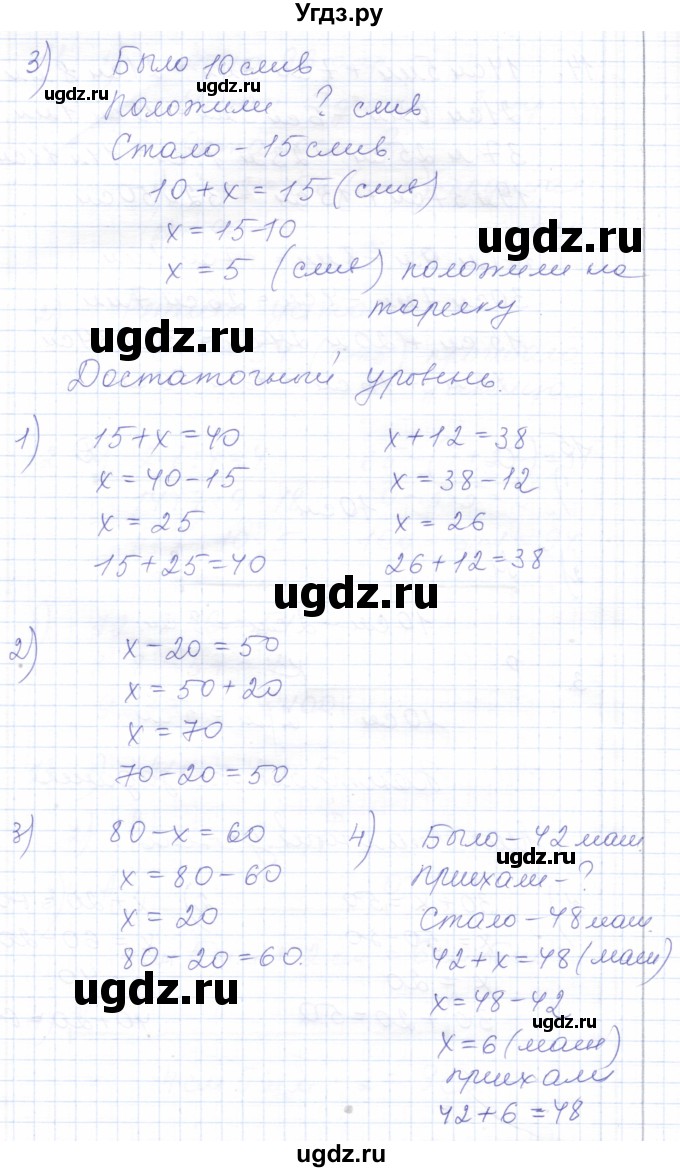 Угдз.ру
3) Было 10 слив
ugdz.ru ugdz.ru
Положили ? слив
Стало - 15 слив.
10 + x = 15 (слив)
x = 15 - 10
ugdz.ru
x = 5 (слив) положили на
тарелку
ugdz.ru
Достаточный уровень.
1) 15 + x = 40 x + 12 = 38
x = 40 - 15 x = 38 - 12
x = 25 x = 26
15 + 25 = 40 26 + 12 = 38
ugdz.ru
2) x - 20 = 50
x = 50 + 20
x = 70
70 - 20 = 50
3) 80 - x = 60 4) Было - 42 маш.
ugdz.ru
x = 80 - 60 приехали - ?
x = 20 Стало - 48 маш.
80 - 20 = 60. 42 + x = 48 (маш)
ugdz.ru
x = 48 - 42
ugdz.ru
x = 6 (маш)
приехали
42 + 6 = 48
ugdz.ru